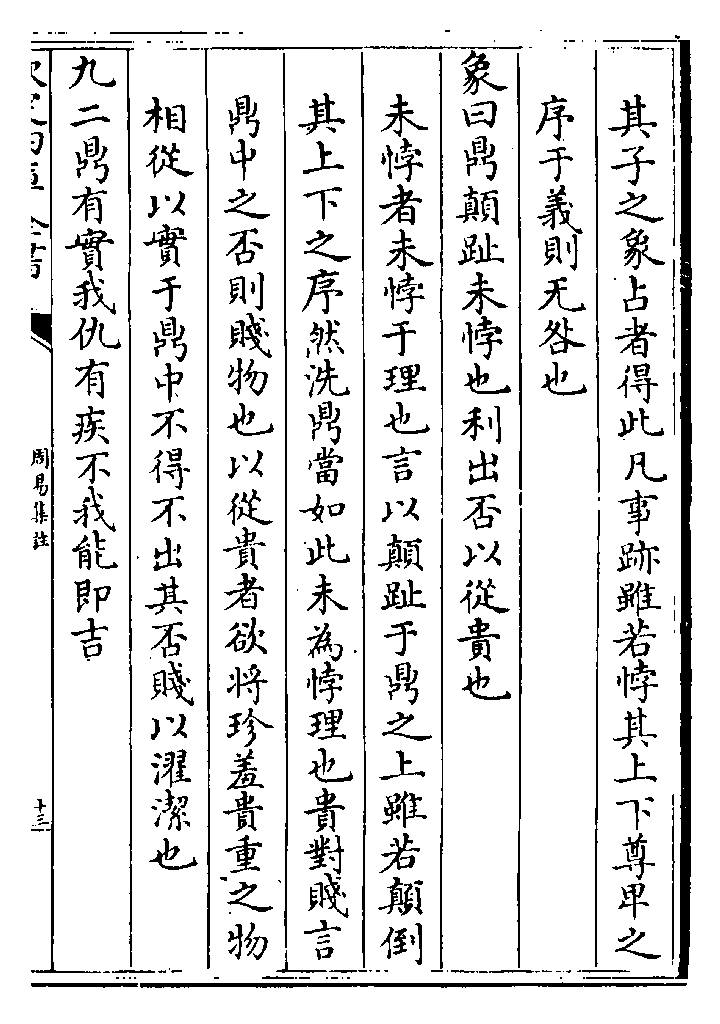 其子之象占者得此凡事跡雖若悖其上下尊卑之
序于義則无咎也
象曰鼎顛趾未悖也利出否以從貴也
未悖者未悖于理也言以顛趾于鼎之上雖若顛倒
其上下之序然洗鼎當如此未為悖理也貴對賤言
鼎中之否則賤物也以從貴者欲將珍羞貴重之物
相從以實于鼎中不得不出其否賤以濯潔也
九二鼎有實我仇有疾不我能即吉
周易集註
十三